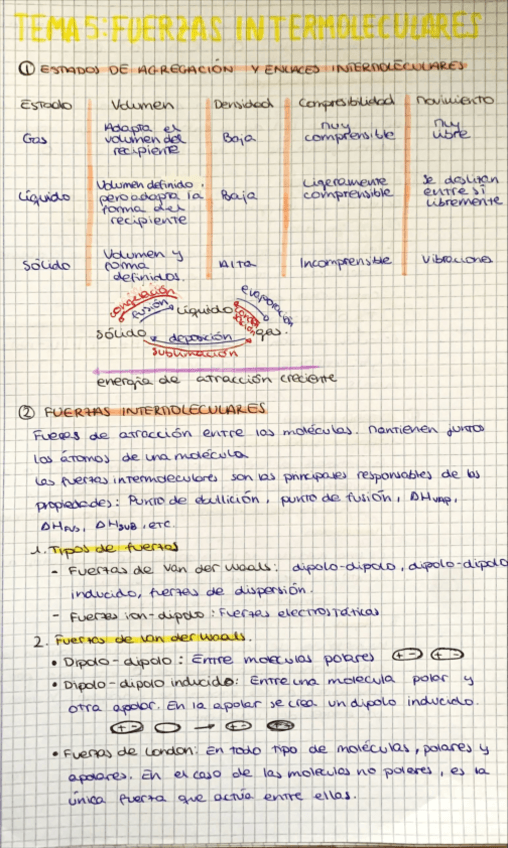 TEMA 5: FUERZAS INTERMOLECULARES
① ESTADOS DE AGREGACIÓN Y ENLACES INTERMOLECULARES
Estado Volumen Densidad Compresibilidad Movimiento
Gas Adapta el volumen del recipiente Baja muy compresible muy libre
Líquido Volumen definido, pero adapta la forma del recipiente Baja Ligeramente compresible Se deslizan entre sí libremente
Sólido Volumen y forma definidos. Alta Incompresible Vibraciones
congelación evaporación
fusión Líquido
Sólido deposición gas.
Sublimación
energía de atracción creciente
② FUERZAS INTERMOLECULARES
Fuerzas de atracción entre las moléculas. Mantienen juntos
los átomos de una molécula
Las fuerzas intermoleculares son las principales responsables de las
propiedades: Punto de ebullición, punto de fusión, ΔHvap,
ΔHfus, ΔHsub, etc.
1. Tipos de fuerzas
- Fuerzas de Van der Waals: dipolo-dipolo, dipolo-dipolo
inducido, fuerzas de dispersión.
- Fuerzas ion-dipolo: Fuerzas electrostáticas
2. Fuerzas de Van der Waals.
• Dipolo-dipolo: Entre moléculas polares + - + -
• Dipolo-dipolo inducido: Entre una molécula polar y
otra apolar. En la apolar se crea un dipolo inducido.
+ - → + - + -
• Fuerzas de London: En todo tipo de moléculas, polares y
apolares. En el caso de las moléculas no polares, es la
única fuerza que actúa entre ellas.